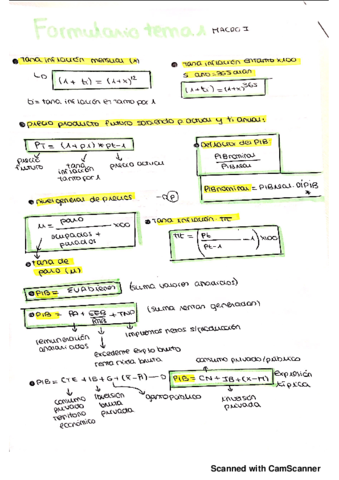 Formulario tema 1 MACRO I
tasa inflación mensual (x)
(1 + ti) = (1+x)¹²
ti = tasa inflación en tanto por 1
tasa inflación en tanto x100
(1+ti) = (1+x)³⁶⁵
precio producto futuro sabiendo p actual y ti anual:
PT = (1+pi) * pt-1
precio futuro
tasa inflación tanto por 1
precio actual
Deflactor del PIB
PIBnominal
PIBreal
PIBnominal = PIBreal · DfPIB
nivel general de precios → P
μ = paro / ocupados + parados x100
tasa inflación πt
πt = (Pt / Pt-1 - 1) x100
tasa de paro (μ)
PIB = ΣVABbienes (suma valores añadidos)
PIB = RA + EEB/RMB + TNP (suma rentas generadas)
remuneración asalariados
impuestos netos s/producción
excedente explo bruto
renta mixta bruta
consumo privado/publico
PIB = CTE + IB + G + (X-M) → PIB = CN + IB + (X-M)
expresión típica
consumo privado territorio económico
inversión bruta privada
gasto publico
inversión privada
Scanned with CamScanner